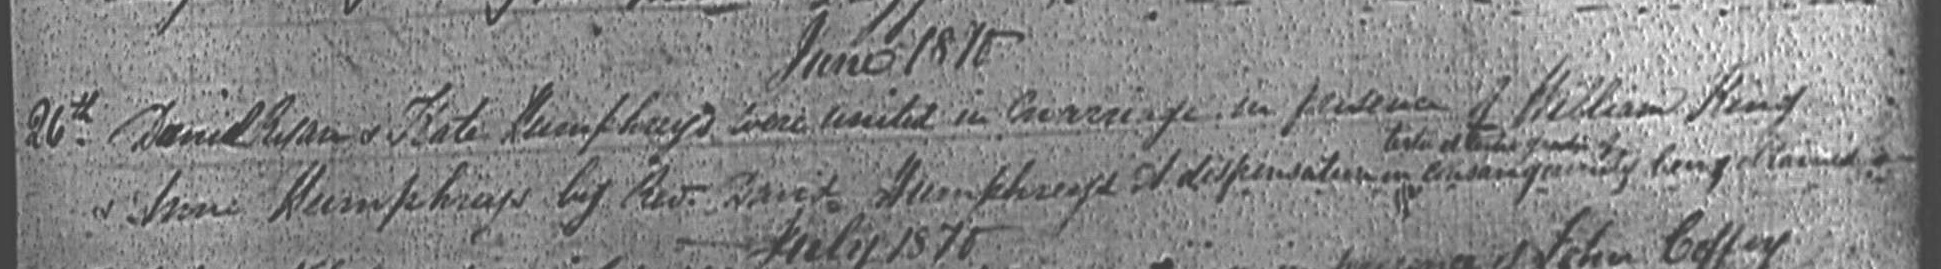 June 1870
26th. Daniel Ryan & Kate Humphreys were united in marriage in presence of William King
tertio et tertio gradu of
& Anne Humphreys by Rev. David Humphreys A dispensation in consanguinity being obtained
July 1870
presence of John Coffey